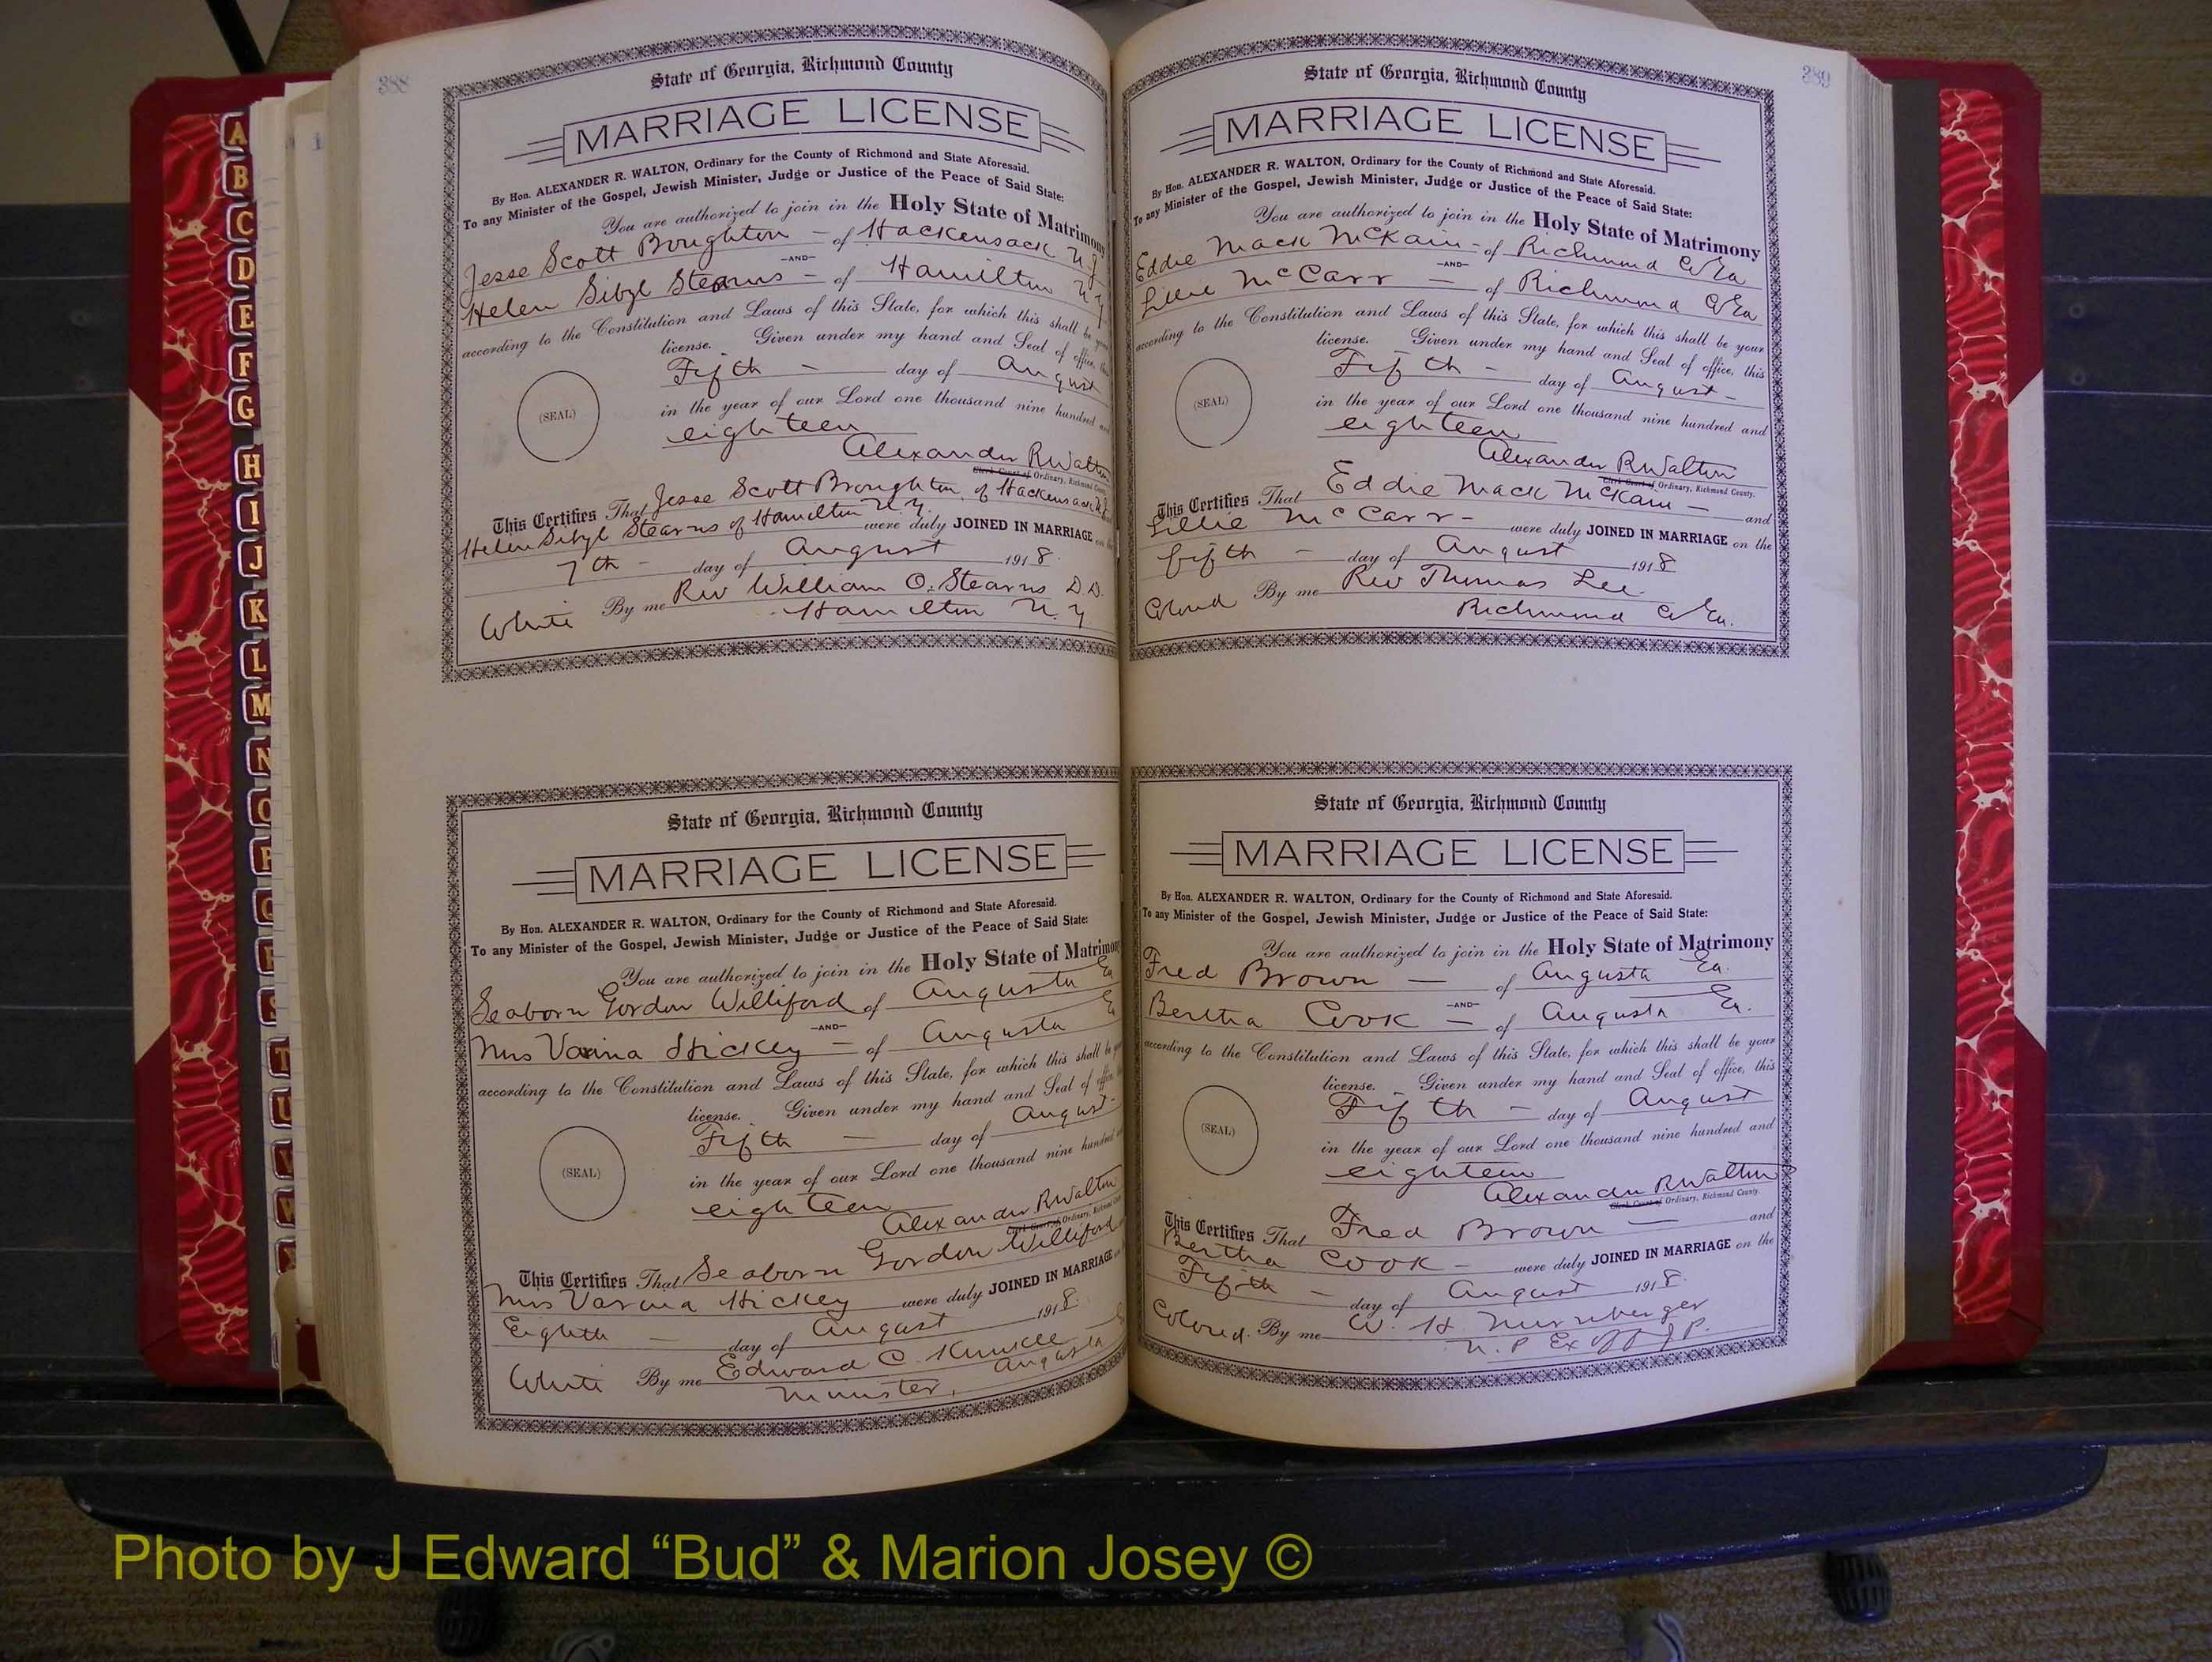 388
State of Georgia, Richmond County
MARRIAGE LICENSE
By Hon. ALEXANDER R. WALTON, Ordinary for the County of Richmond and State Aforesaid.
To any Minister of the Gospel, Jewish Minister, Judge or Justice of the Peace of Said State:
You are authorized to join in the Holy State of Matrimony
Jesse Scott Boughton - of Hackensack N.J
-AND-
Helen Sibyl Stearns - of Hamilton N.Y
according to the Constitution and Laws of this State, for which this shall be your
license. Given under my hand and Seal of office, this
Fifth - day of August
(SEAL)
in the year of our Lord one thousand nine hundred and
eighteen
Alexander R Walton
Clerk Court of Ordinary, Richmond County.
This Certifies That Jesse Scott Broughton of Hackensack N.J
Helen Sibyl Stearns of Hamilton N.Y. were duly JOINED IN MARRIAGE on the
7th - day of August 1918.
White By me Rev William O. Stearns D.D.
Hamilton N.Y
State of Georgia, Richmond County
MARRIAGE LICENSE
By Hon. ALEXANDER R. WALTON, Ordinary for the County of Richmond and State Aforesaid.
To any Minister of the Gospel, Jewish Minister, Judge or Justice of the Peace of Said State:
You are authorized to join in the Holy State of Matrimony
Seaborn Gordon Williford of Augusta Ga
-AND-
Mrs Varina Hickey - of Augusta Ga
according to the Constitution and Laws of this State, for which this shall be your
license. Given under my hand and Seal of office, this
Fifth - day of August-
(SEAL)
in the year of our Lord one thousand nine hundred and
eighteen
Alexander R Walton
Clerk Court of Ordinary, Richmond County.
This Certifies That Seaborn Gordon Williford
Mrs Varina Hickey were duly JOINED IN MARRIAGE on
Eighth - day of August 1918.
White By me Edward C.
Minister, Augusta
289
State of Georgia, Richmond County
MARRIAGE LICENSE
By Hon. ALEXANDER R. WALTON, Ordinary for the County of Richmond and State Aforesaid.
To any Minister of the Gospel, Jewish Minister, Judge or Justice of the Peace of Said State:
You are authorized to join in the Holy State of Matrimony
Eddie Mack McKain - of Richmond Co Ga
-AND-
Lillie McCarr - of Richmond Co Ga
according to the Constitution and Laws of this State, for which this shall be your
license. Given under my hand and Seal of office, this
Fifth - day of August -
(SEAL)
in the year of our Lord one thousand nine hundred and
eighteen
Alexander R Walton
Clerk Court of Ordinary, Richmond County.
This Certifies That Eddie Mack McKain - and
Lillie McCarr - were duly JOINED IN MARRIAGE on the
fifth - day of August 1918
Colored By me Rev Thomas Lee
Richmond Co Ga.
State of Georgia, Richmond County
MARRIAGE LICENSE
By Hon. ALEXANDER R. WALTON, Ordinary for the County of Richmond and State Aforesaid.
To any Minister of the Gospel, Jewish Minister, Judge or Justice of the Peace of Said State:
You are authorized to join in the Holy State of Matrimony
Fred Brown - of Augusta Ga.
-AND-
Bertha Cook - of Augusta Ga.
according to the Constitution and Laws of this State, for which this shall be your
license. Given under my hand and Seal of office, this
Fifth - day of August
(SEAL)
in the year of our Lord one thousand nine hundred and
eighteen
Alexander R Walton
Clerk Court of Ordinary, Richmond County.
This Certifies That Fred Brown - and
Bertha Cook - were duly JOINED IN MARRIAGE on the
Fifth - day of August 1918.
Colored. By me W. H. Nurnberger
N. P Ex Off J P.
A
B
C
D
E
F
G
H
I
J
K
L
M
N
O
P
Q
R
S
T
U
V
W
Photo by J Edward “Bud” & Marion Josey ©